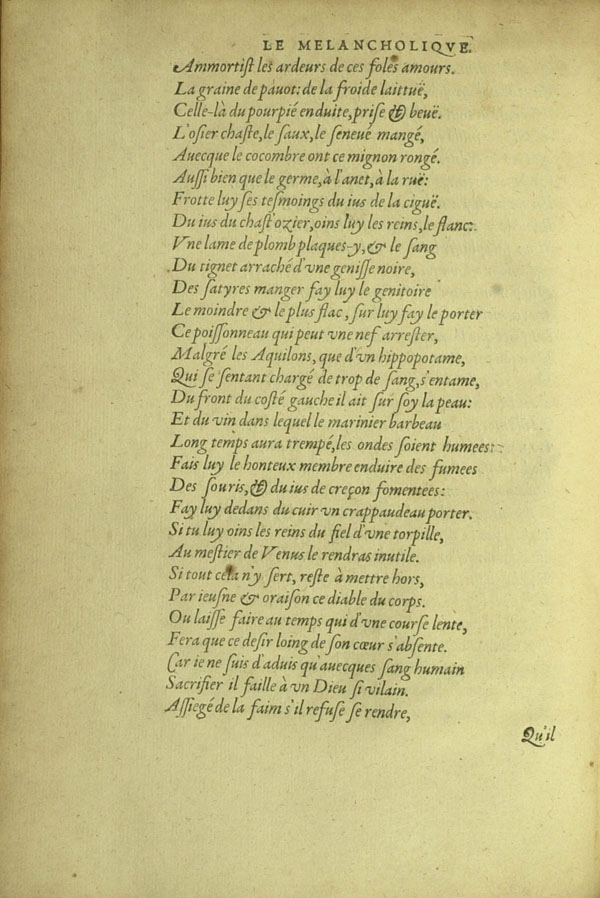 LE MELANCHOLIQVE.
Ammortiſt les ardeurs de ces foles amours.
La graine de pauot: de la froide laittuë,
Celle-là du pourpié enduite, priſe & beuë.
L'oſier chaſte, le ſaux, le ſeneué mangé,
Auecque le cocombre ont ce mignon rongé.
Auſſi bien que le germe, à l'anet, à la ruë:
Frotte luy ſes teſmoings du ius de la ciguë.
Du ius du chaſt'ozier, oins luy les reins, le flanc:
Vne lame de plomb plaques-y, & le ſang
Du tignet arraché d'vne geniſſe noire,
Des ſatyres manger fay luy le genitoire
Le moindre & le plus flac, ſur luy fay le porter
Ce poiſſonneau qui peut vne nef arreſter,
Malgré les Aquilons, que d'vn hippopotame,
Qui ſe ſentant chargé de trop de ſang, s'entame,
Du front du coſté gauche il ait ſur ſoy la peau:
Et du vin dans lequel le marinier barbeau
Long temps aura trempé, les ondes ſoient humees:
Fais luy le honteux membre enduire des fumees
Des ſouris, & du ius de creçon fomentees:
Fay luy dedans du cuir vn crappaudeau porter.
Si tu luy oins les reins du fiel d'vne torpille,
Au meſtier de Venus le rendras inutile.
Si tout cela n'y ſert, reſte à mettre hors,
Par ieuſne & oraiſon ce diable du corps.
Ou laiſſe faire au temps qui d'vne courſe lente,
Fera que ce deſir loing de ſon cœur s'abſente.
Car ie ne ſuis d'aduis qu'auecques ſang humain
Sacrifier il faille à vn Dieu ſi vilain.
Aſſiegé de la faim s'il refuſe ſe rendre,
Qu'il